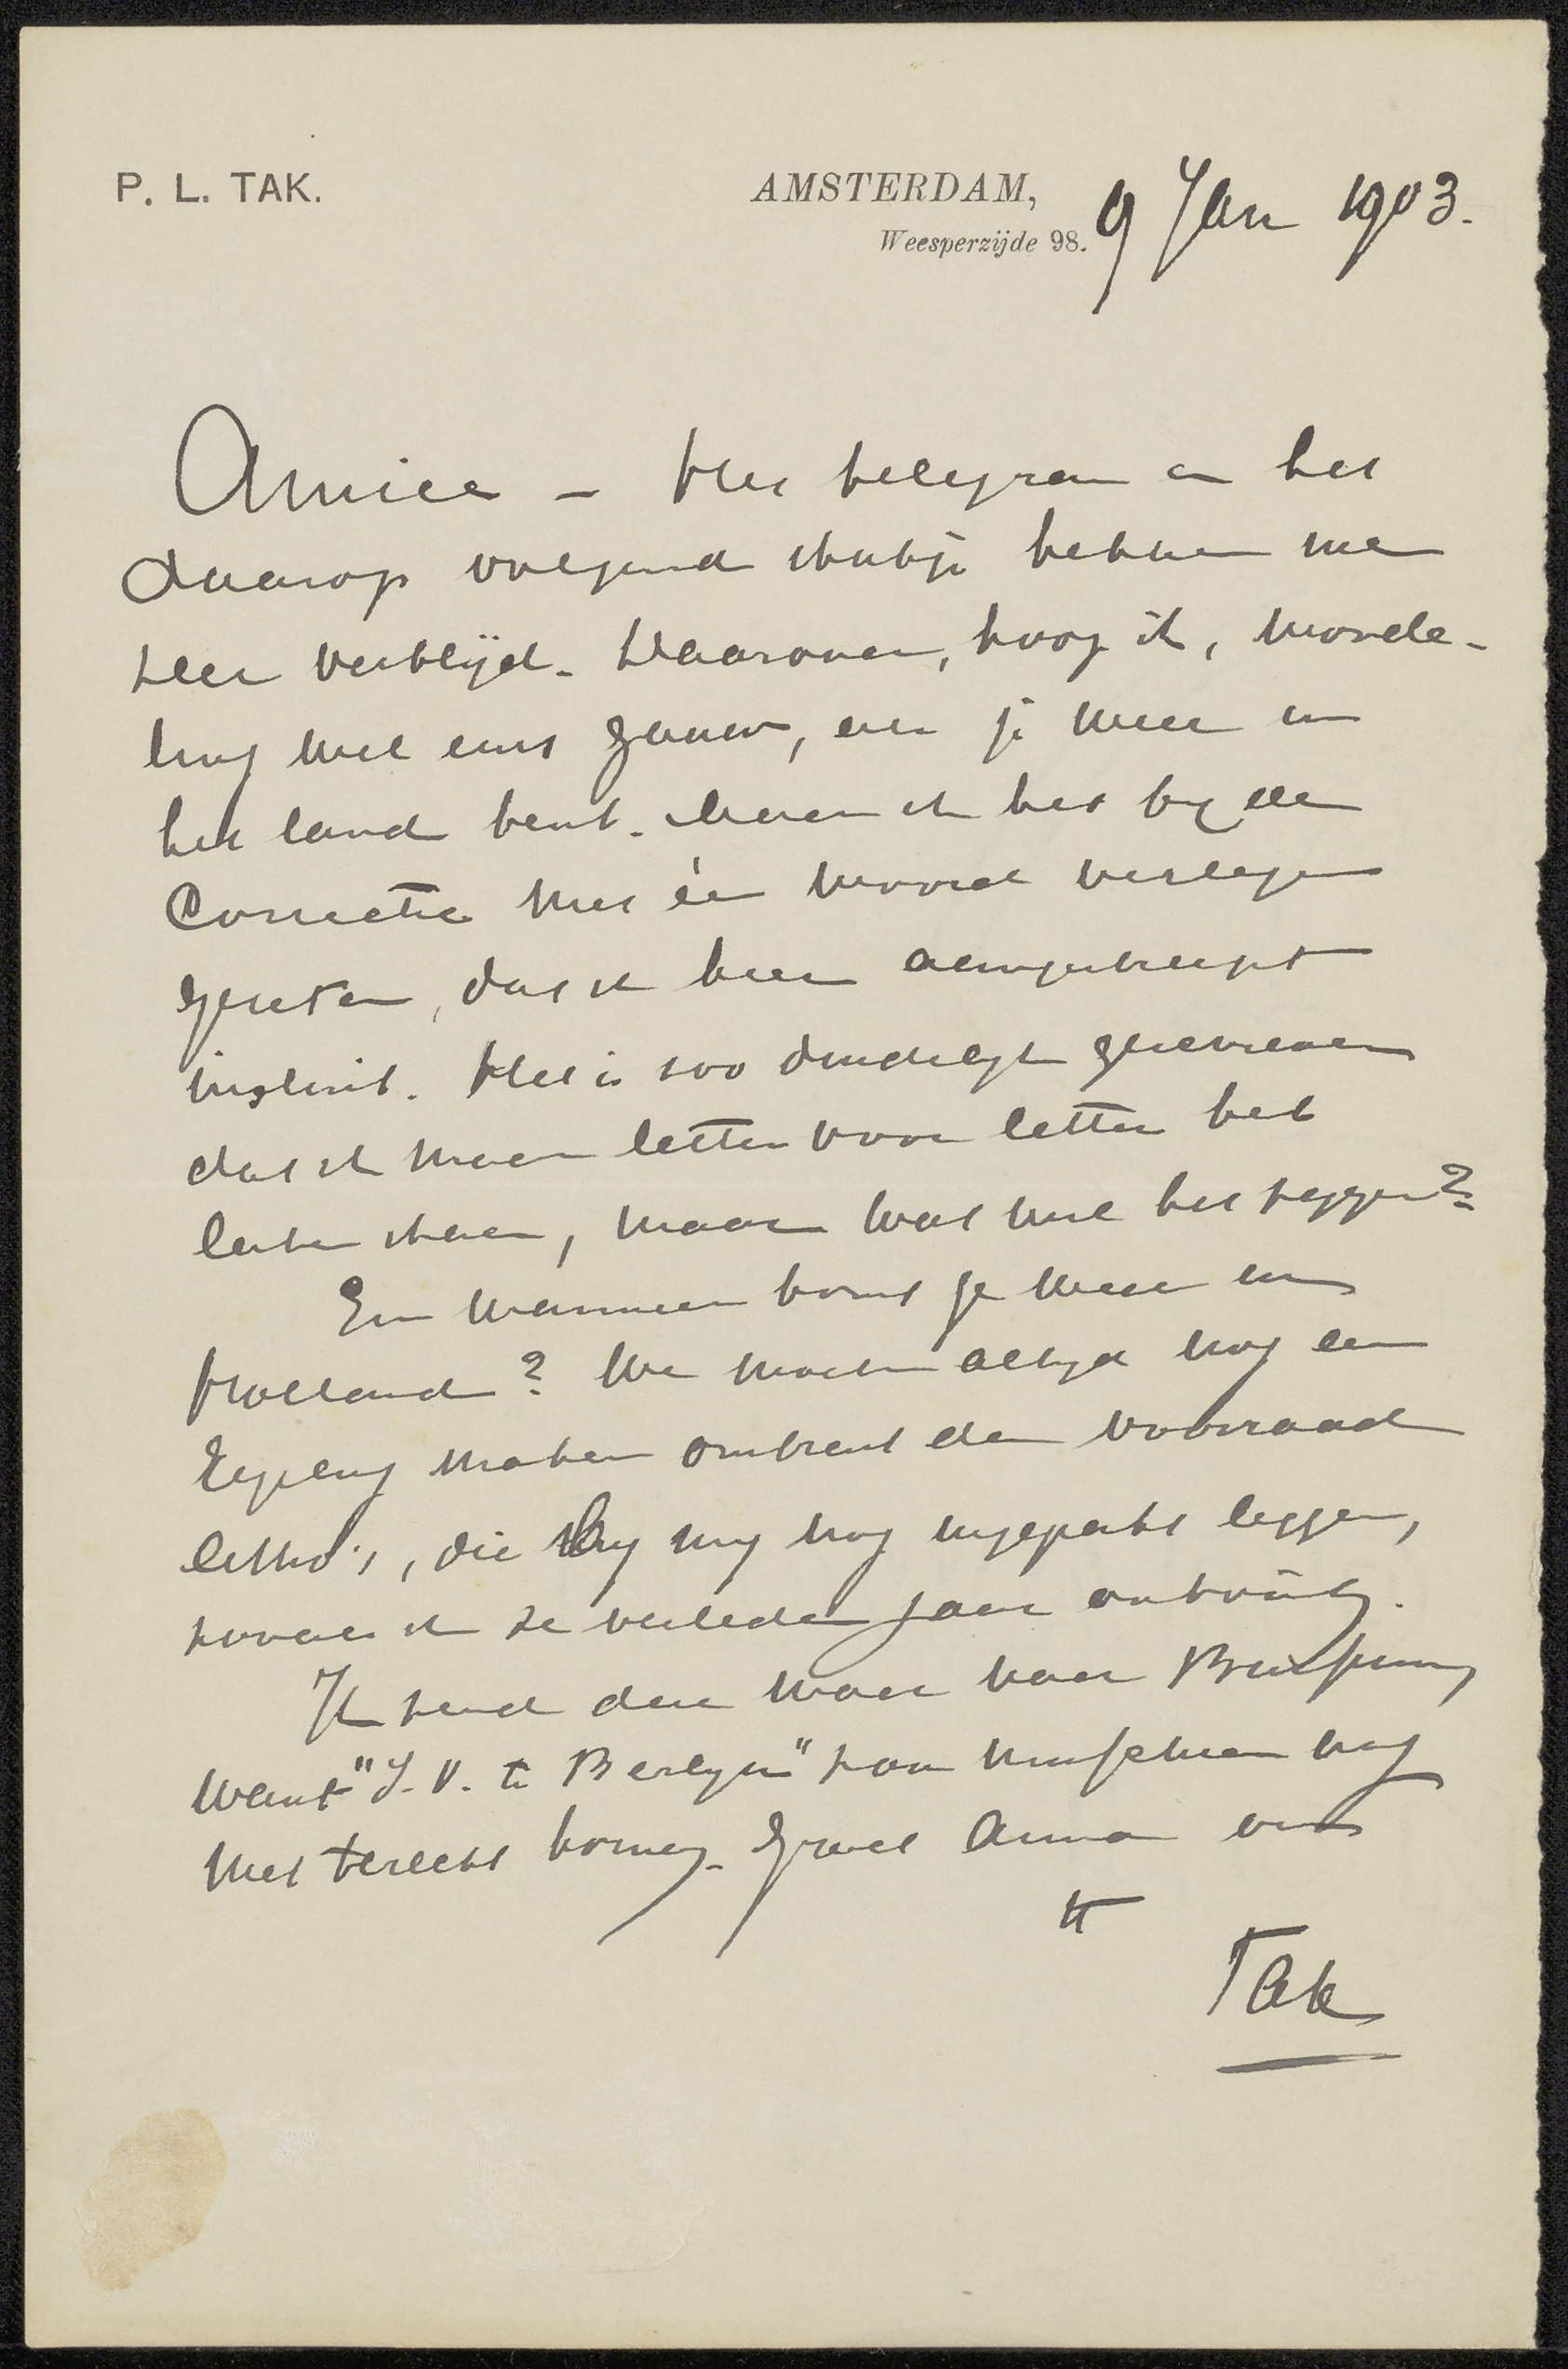 P. L. TAK.
AMSTERDAM, 9 Jan 1903.
Weesperzijde 98.
Amice – Het telegram en het
daarop volgend stukje hebben me
zeer verblijd. Daarover, hoop ik, monde-
ling wel eens gauw, als je weer in
het land bent. Alleen ik het bij de
Correctie met één woord verlegen
gezeten, dat ik hier aangestreept
insluit. Het is zoo duidelijk geschreven
dat ik maar letter voor letter heb
laten staan, maar wat wil het zeggen?
En wanneer komt je weer in
Holland? We moeten altijd nog een
regeling maken omtrent den voorraad
litho's, die bij mij nog ingepakt liggen,
zooals ik ze verleden jaar ontving.
Ik zend deze maar naar
want "J. V. te Berlijn" zou misschien nog
niet terecht komen. Groet Anna van
tt
Tak